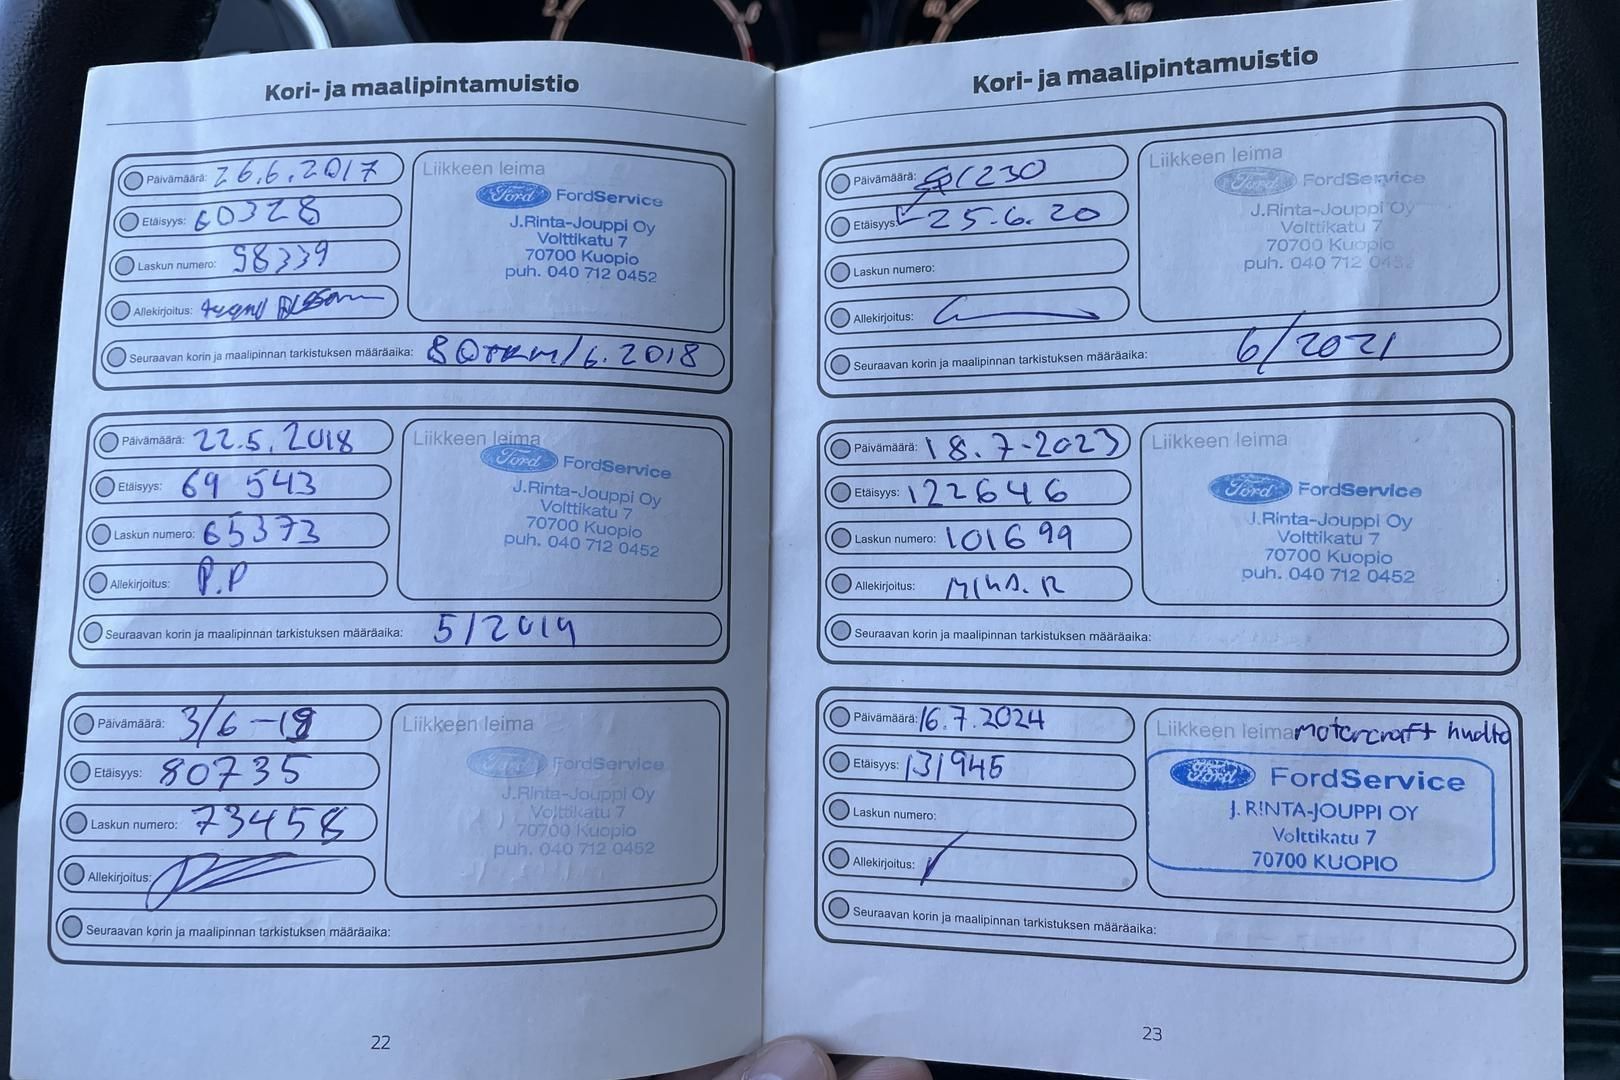 Kori- ja maalipintamuistio
Päivämäärä: 26.6.2017
Etäisyys: 60328
Laskun numero: 98339
Allekirjoitus:
Liikkeen leima
Ford FordService
J.Rinta-Jouppi Oy
Volttikatu 7
70700 Kuopio
puh. 040 712 0452
Seuraavan korin ja maalipinnan tarkistuksen määräaika: 80tkm/6.2018
Päivämäärä: 22.5.2018
Etäisyys: 69 543
Laskun numero: 65373
Allekirjoitus: P.P
Liikkeen leima
Ford FordService
J.Rinta-Jouppi Oy
Volttikatu 7
70700 Kuopio
puh. 040 712 0452
Seuraavan korin ja maalipinnan tarkistuksen määräaika: 5/2019
Päivämäärä: 3/6-19
Etäisyys: 80735
Laskun numero: 73458
Allekirjoitus:
Liikkeen leima
Ford FordService
J.Rinta-Jouppi Oy
Volttikatu 7
70700 Kuopio
puh. 040 712 0452
Seuraavan korin ja maalipinnan tarkistuksen määräaika:
22
Kori- ja maalipintamuistio
Päivämäärä:
Etäisyys: 25.6.20
Laskun numero:
Allekirjoitus:
Liikkeen leima
Ford FordService
J.Rinta-Jouppi Oy
Volttikatu 7
70700 Kuopio
puh. 040 712 0452
Seuraavan korin ja maalipinnan tarkistuksen määräaika: 6/2021
Päivämäärä: 18.7-2023
Etäisyys: 122646
Laskun numero: 101699
Allekirjoitus:
Liikkeen leima
Ford FordService
J.Rinta-Jouppi Oy
Volttikatu 7
70700 Kuopio
puh. 040 712 0452
Seuraavan korin ja maalipinnan tarkistuksen määräaika:
Päivämäärä: 16.7.2024
Etäisyys: 131945
Laskun numero:
Allekirjoitus:
Liikkeen leima motorcraft huolto
Ford FordService
J. RINTA-JOUPPI OY
Volttikatu 7
70700 KUOPIO
Seuraavan korin ja maalipinnan tarkistuksen määräaika:
23